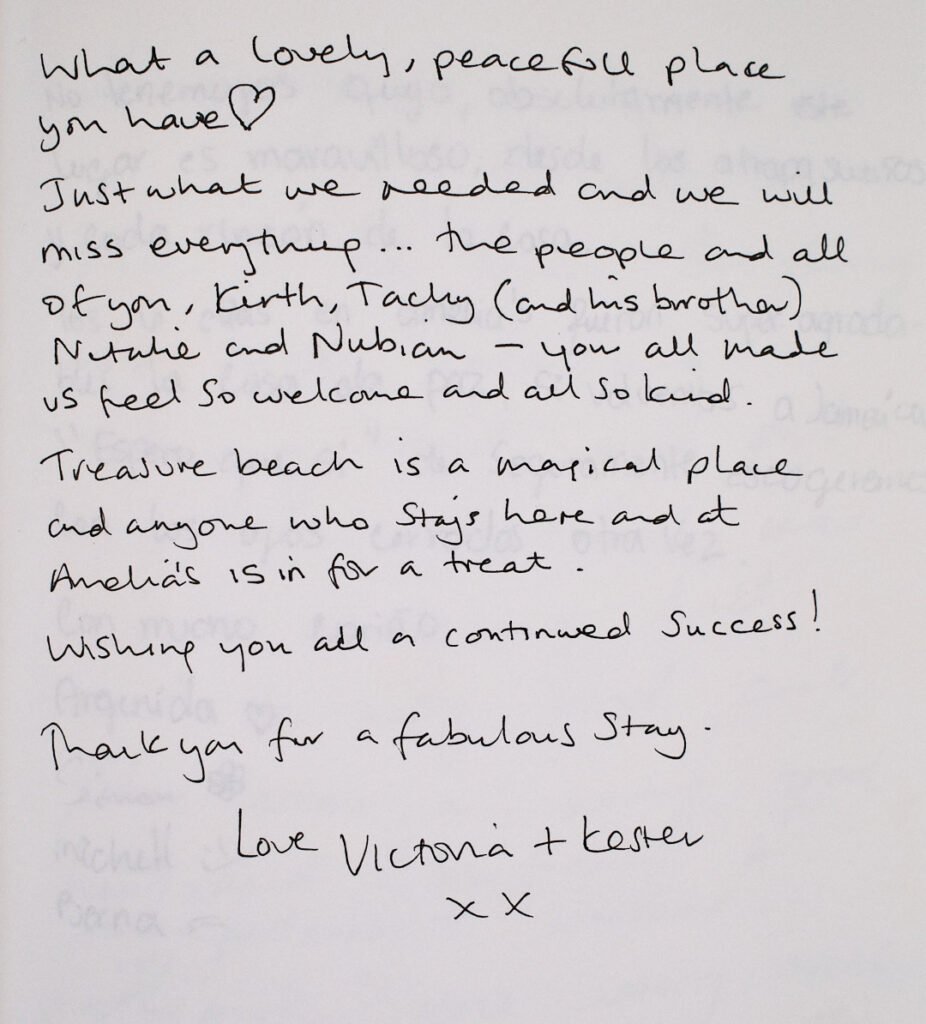 What a lovely, peacefull place
you have♡
Just what we needed and we will
miss everything... the people and all
of you, Kirth, Tacky (and his brother)
Natalie and Nubian – you all made
us feel so welcome and all so kind.
Treasure beach is a magical place
and anyone who stays here and at
Amelia's is in for a treat.
Wishing you all a continued success!
Thank you for a fabulous stay.
Love Victoria + Kester
x x